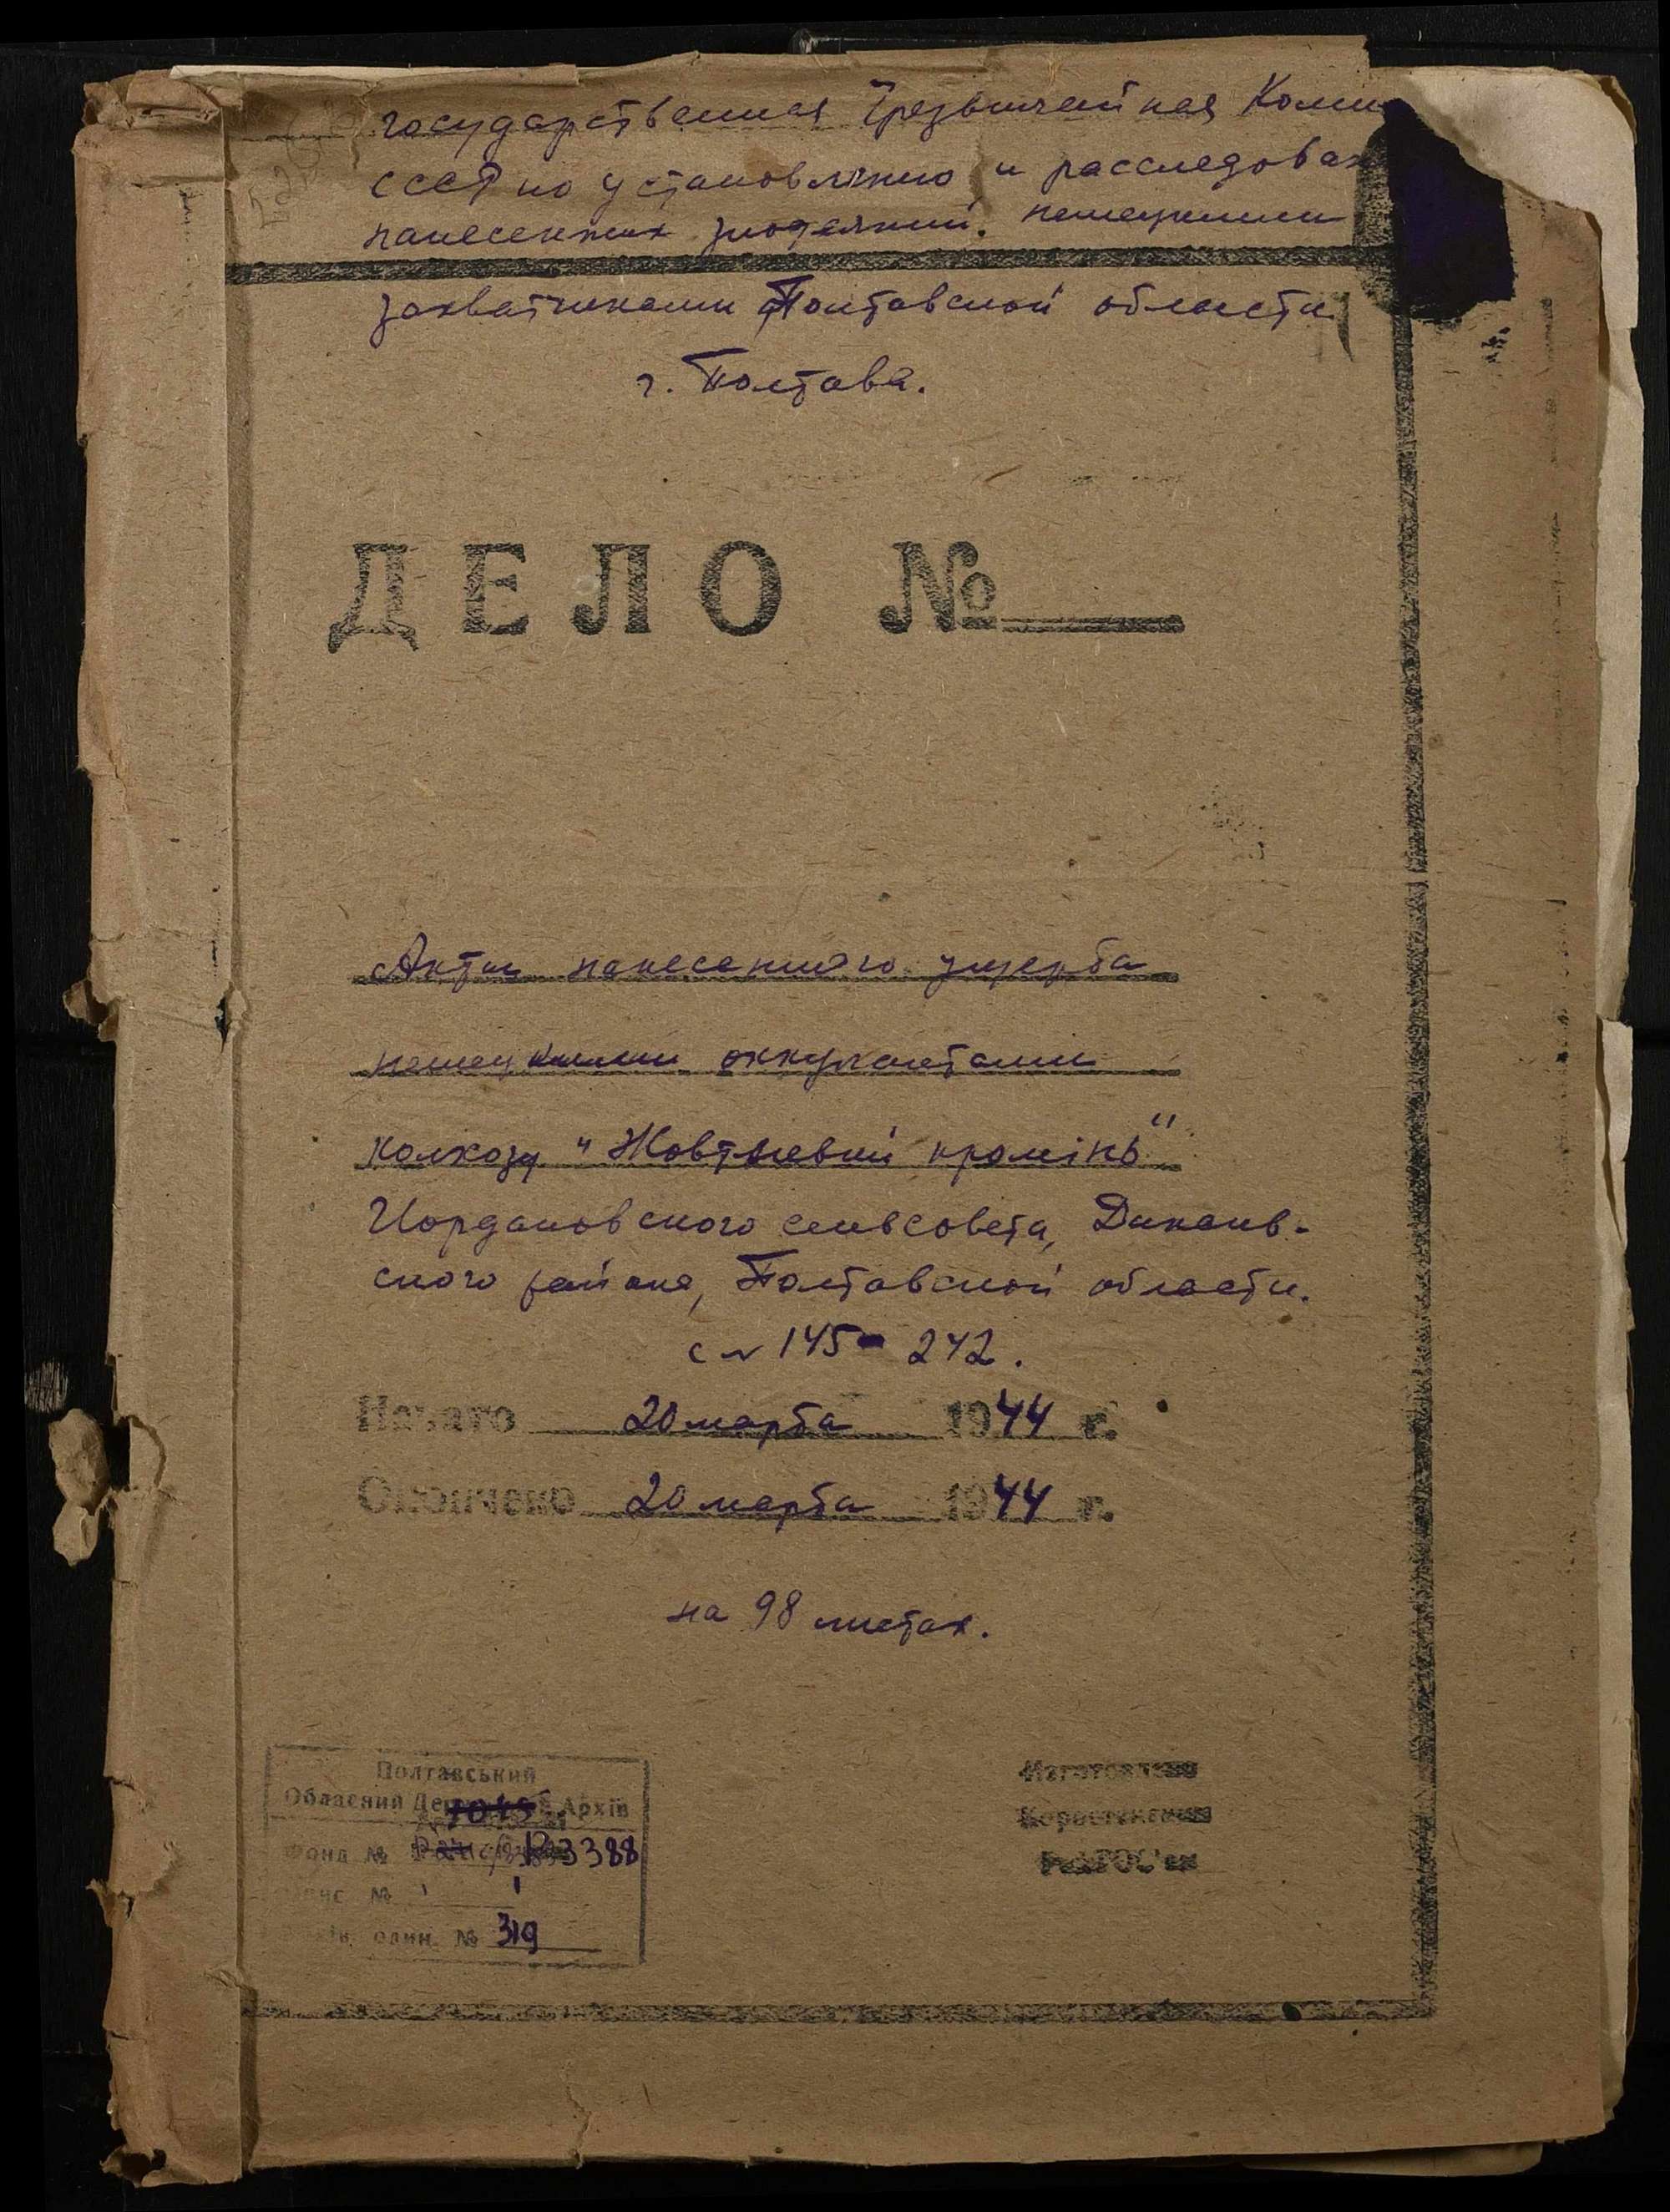 Государственная Чрезвычайная Коми
СССР по установлению и расследова
нанесенных злодеяний немецкими
захватчиками Полтавской области
г. Полтава.
ДЕЛО №
Акты нанесенного ущерба
немецкими оккупантами
колхозу "Жовтневий промінь"
Иордановского сельсовета, Диканьв-
ского района, Полтавской области.
с № 145 - 242.
Начато 20 марта 1944 г.
Окончено 20 марта 1944 г.
на 98 листах.
Полтавський
Обласний Архів
Фонд № 3388
№ 1
один. № 319
Изготовлено